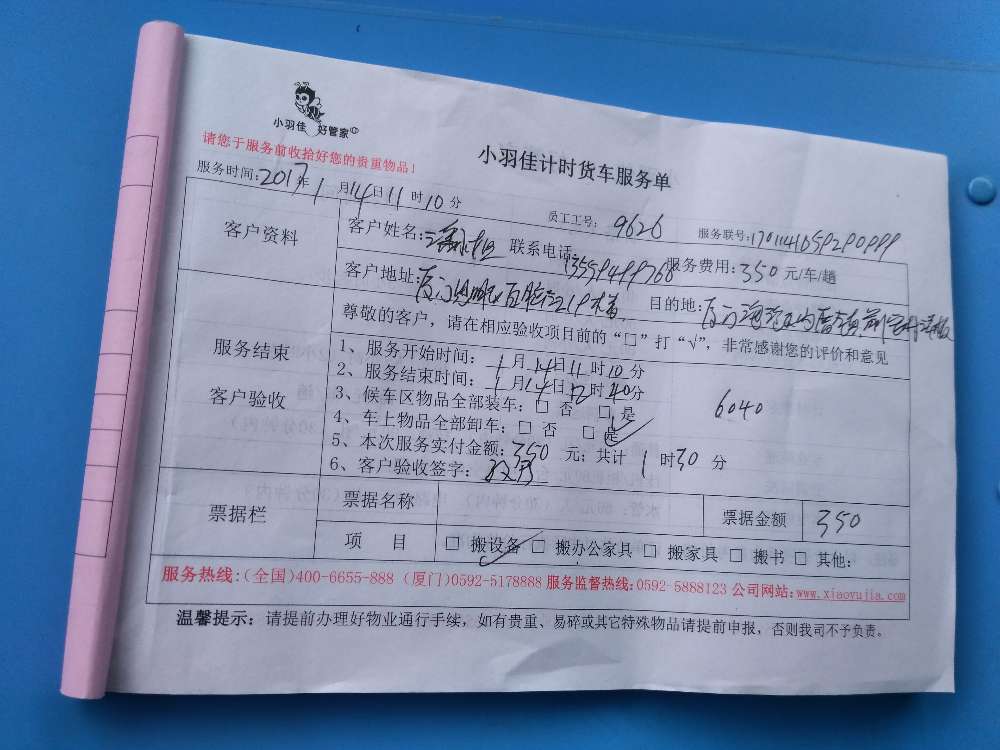 小羽佳 好管家
请您于服务前收拾好您的贵重物品!
小羽佳计时货车服务单
服务时间:2017年1月14日11时10分
员工工号: 9626
服务联号:
客户资料
客户姓名: 联系电话: 13559499768 服务费用:350元/车/趟
客户地址: 目的地:
服务结束
客户验收
尊敬的客户,请在相应验收项目前的“□”打“√”,非常感谢您的评价和意见
1、服务开始时间: 1月14日11时10分
2、服务结束时间: 1月14日12时40分
3、候车区物品全部装车:□ 否 □ 是
4、车上物品全部卸车:□ 否 □ 是
6040
5、本次服务实付金额:350 元;共计 1 时30分
6、客户验收签字:
票据栏
票据名称
票据金额 350
项 目
□ 搬设备 □ 搬办公家具 □ 搬家具 □ 搬书 □ 其他:
服务热线:(全国)400-6655-888 (厦门)0592-5178888 服务监督热线:0592-5888123 公司网站:www.xiaoyujia.com
温馨提示:请提前办理好物业通行手续,如有贵重、易碎或其它特殊物品请提前申报,否则我司不予负责。